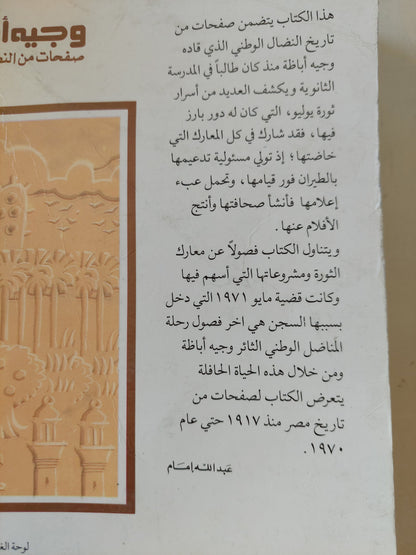 وجيه
صفحات من
هذا الكتاب يتضمن صفحات من
تاريخ النضال الوطني الذي قاده
وجيه أباظة منذ كان طالباً في المدرسة
الثانوية ويكشف العديد من أسرار
ثورة يوليو، التي كان له دور بارز
فيها، فقد شارك في كل المعارك التي
خاضتها؛ إذ تولي مسئولية تدعيمها
بالطيران فور قيامها، وتحمل عبء
إعلامها فأنشأ صحافتها وأنتج
الأفلام عنها.
ويتناول الكتاب فصولاً عن معارك
الثورة ومشروعاتها التي أسهم فيها
وكانت قضية مايو ١٩٧١ التي دخل
بسببها السجن هي اخر فصول رحلة
المناضل الوطني الثائر وجيه أباظة
ومن خلال هذه الحياة الحافلة
يتعرض الكتاب لصفحات من
تاريخ مصر منذ ١٩١٧ حتي عام
١٩٧٠.
عبد الله إمام
لوحة